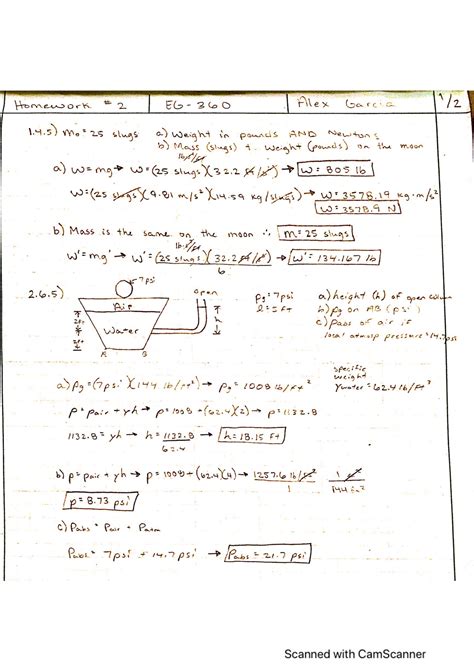 Homework #2 EG-360 Alex Garcia 1/2
1.4.5) m₀ = 25 slugs a) Weight in pounds AND Newtons
b) Mass (slugs) + Weight (pounds) on the moon
a) W = mg → W = (25 slugs)(32.2 ) → W = 805 lb
W = (25 slugs)(9.81 m/s²)(14.59 kg/slugs) → W = 3578.19 kg·m/s²
W = 3578.9 N
b) Mass is the same on the moon ∴ m = 25 slugs
W' = mg' → W' = (25 slugs)(32.2 ) → W' = 134.167 lb
6
2.6.5)
7psi
open
Air
Water
2ft
2ft
h
A B
Pg = 7psi
l = 5 ft
a) height (h) of open column
b) Pg on AB (psi)
c) Pabs of air if
local atmosp pressure = 14.7psi
specific
weight
γwater = 62.4 lb/ft³
a) Pg = (7psi)(144 lb/ft²) → Pg = 1008 lb/ft²
P = Pair + γh → P = 1008 + (62.4)(2) → P = 1132.8
1132.8 = γh → h = 1132.8 / 62.4 → h = 18.15 ft
b) P = Pair + γh → P = 1008 + (62.4)(4) → 1257.6 lb/ft² / 1 1 ft² / 144 in²
P = 8.73 psi
c) Pabs = Pair + Patm
Pabs = 7psi + 14.7psi → Pabs = 21.7 psi
Scanned with CamScanner